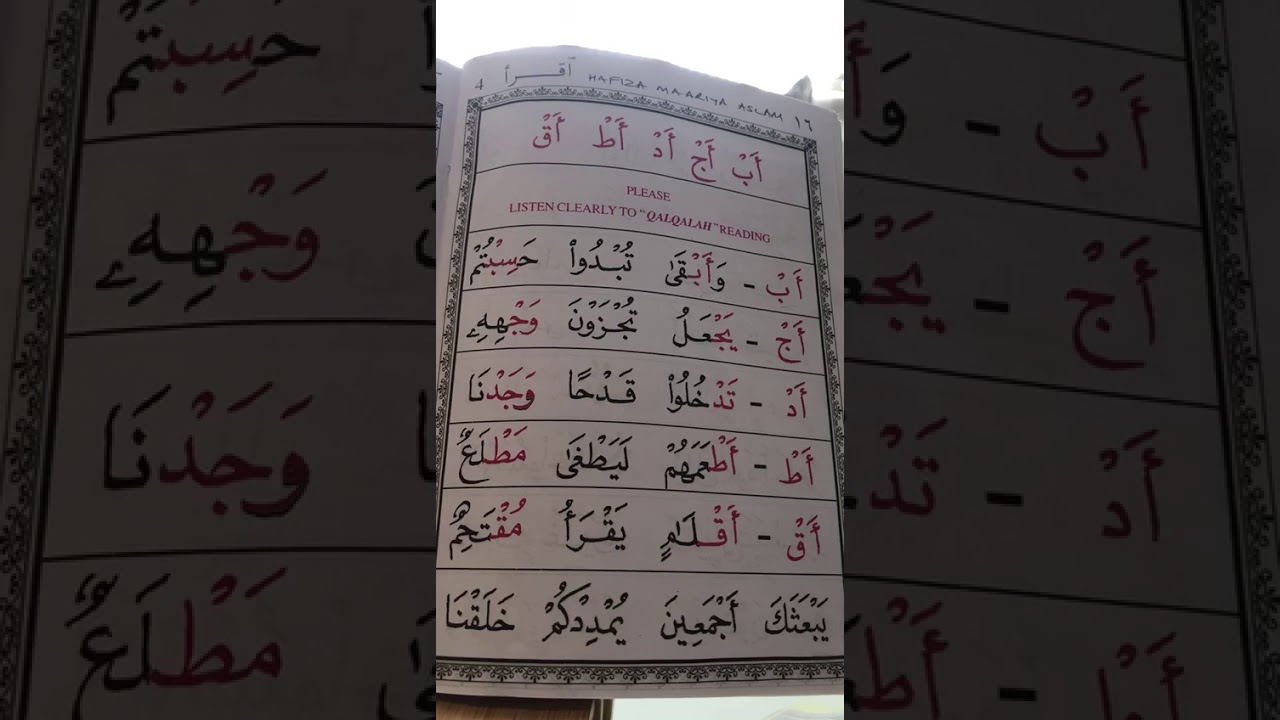 4 اقرأ HAFIZA MAARIYA ASLAM ١٦
أَبْ أَجْ أَدْ أَطْ أَقْ
PLEASE
LISTEN CLEARLY TO "QALQALAH" READING
أَبْ - وَأَبْقَىٰ تُبْدُوْا حَسِبْتُمْ
أَجْ - يَجْعَلُ تُجْزَوْنَ وَجْهِهٖ
أَدْ - تَدْخُلُوْا قَدْحًا وَجَدْنَا
أَطْ - أَطْعَمَهُمْ لَيَطْغَىٰ مَطْلَعٌ
أَقْ - أَقْلَامٍ يَقْرَأُ مُقْتَحِمٌ
يَبْعَثَكَ أَجْمَعِينَ يُمْدِدْكُمْ خَلَقْنَا